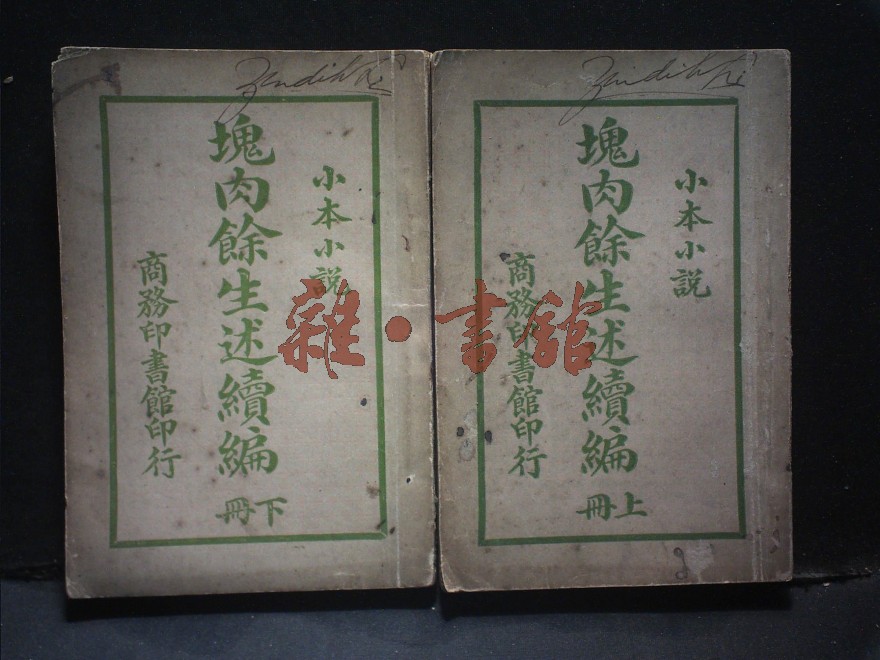 小本小說
塊肉餘生述續編
上冊
商務印書館印行
小本小說
塊肉餘生述續編
下冊
商務印書館印行
雜·書館